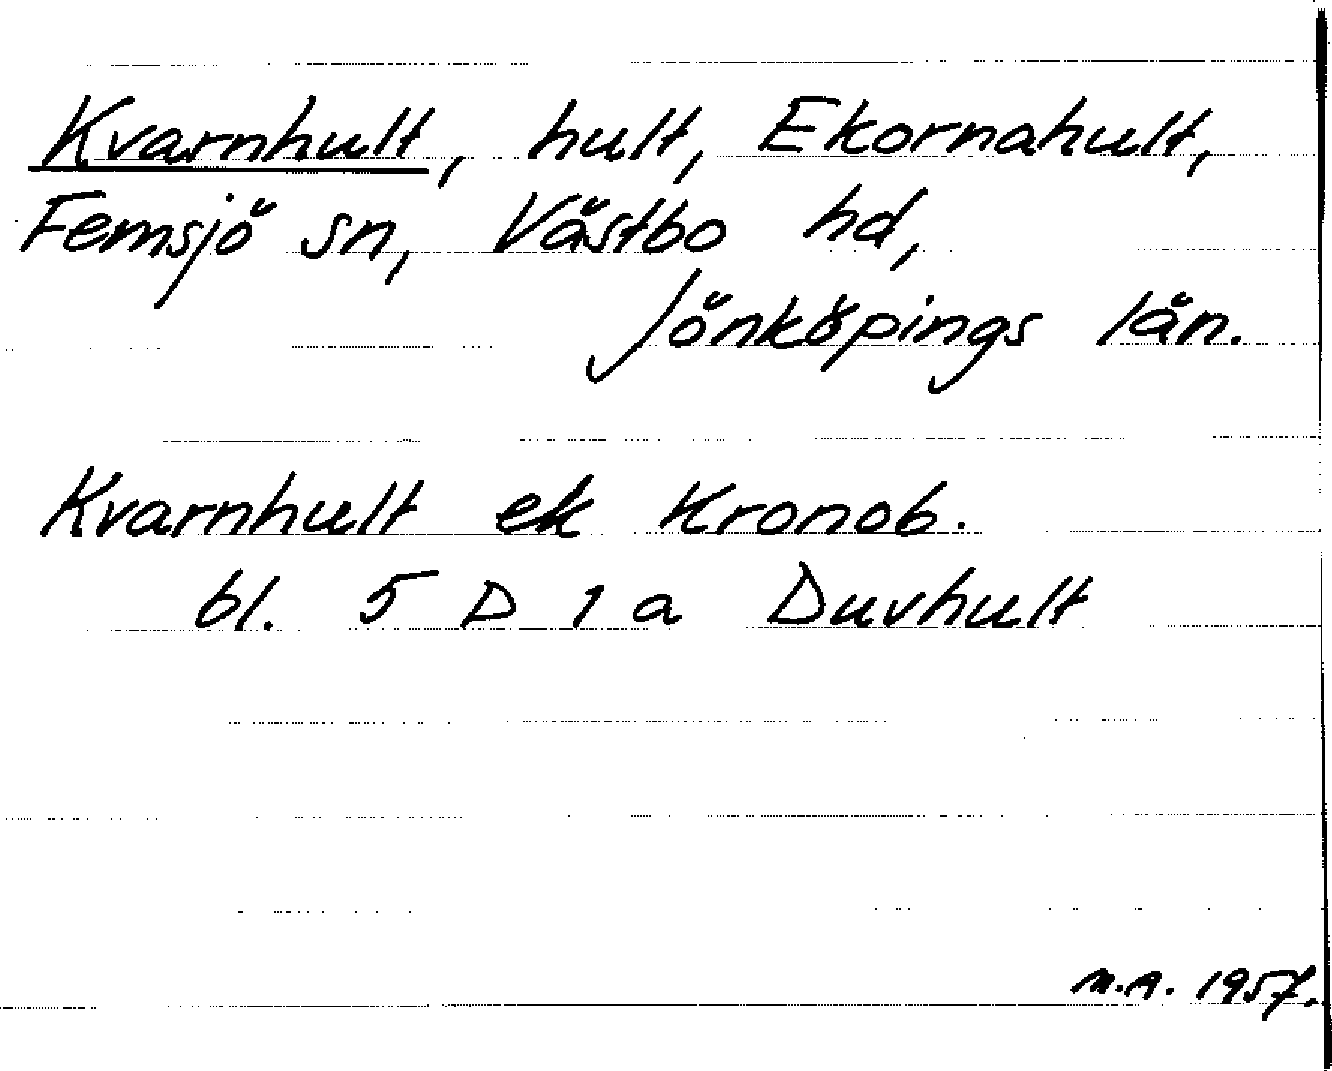 Kvarnhult, hult, Ekornahult,
Femsjö sn, Västbo hd,
Jönköpings län.
Kvarnhult ek Kronob.
bl. 5 D 1 a Duvhult
M.A. 1957.